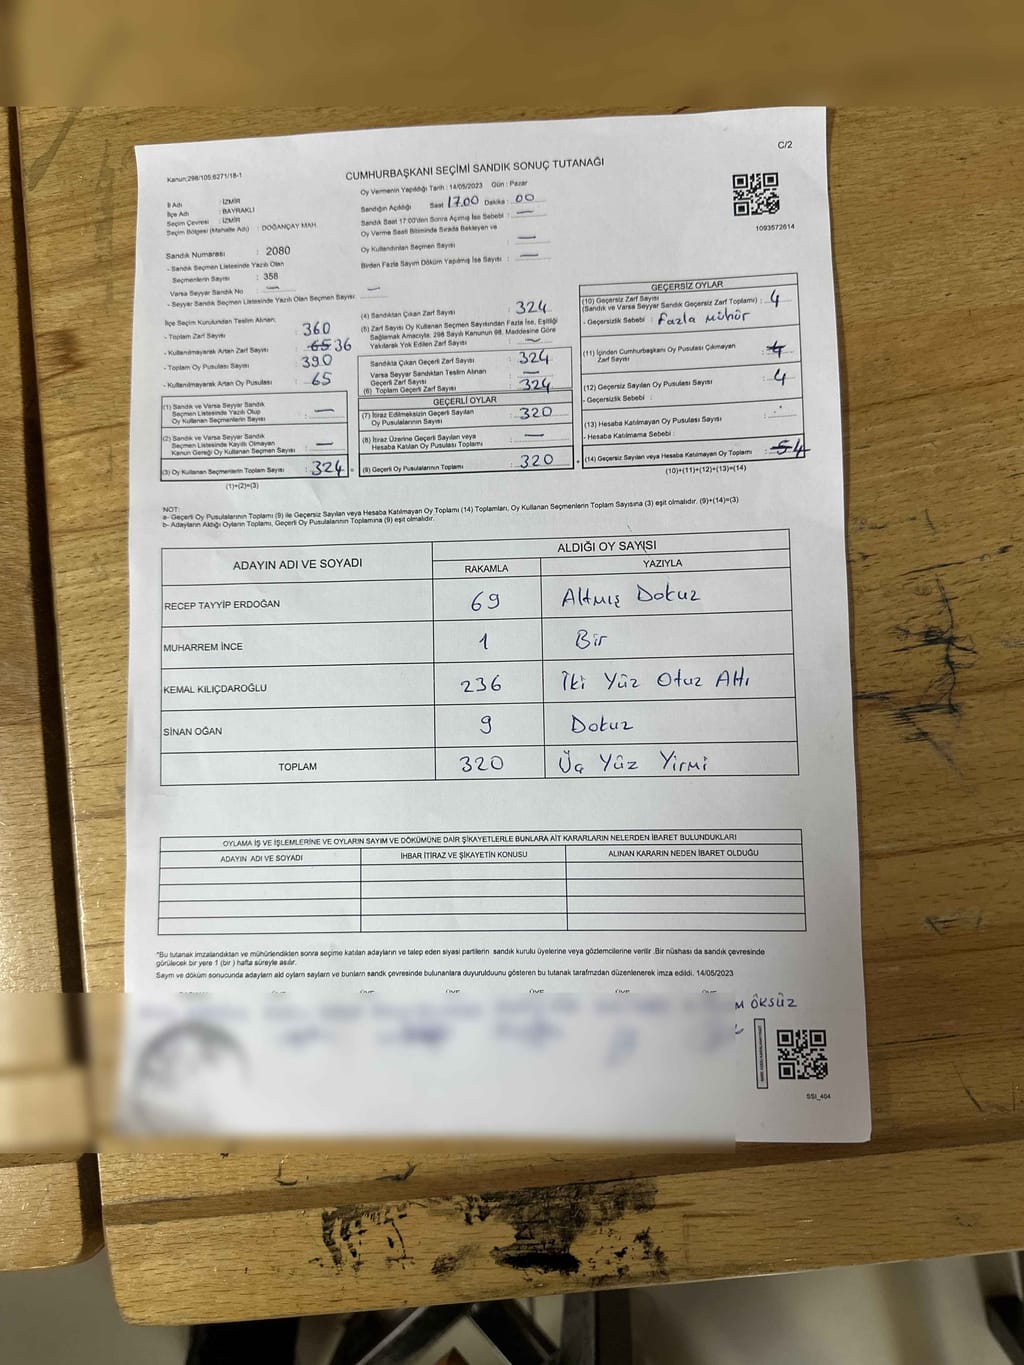 C/2
Kanun:298/105:6271/18-1
CUMHURBAŞKANI SEÇİMİ SANDIK SONUÇ TUTANAĞI
Oy Vermenin Yapıldığı Tarih : 14/05/2023 Gün : Pazar
İl Adı : İZMİR
İlçe Adı : BAYRAKLI
Seçim Çevresi : İZMİR
Seçim Bölgesi (Mahalle Adı) : DOĞANÇAY MAH.
Sandığın Açıldığı Saat 17.00 Dakika : 00
Sandık Saat 17:00'den Sonra Açımış İse Sebebi : —
Oy Verme Saati Bitiminde Sırada Bekleyen ve
Oy Kullandırılan Seçmen Sayısı : —
Birden Fazla Sayım Döküm Yapılmış İse Sayısı : —
1093572614
Sandık Numarası : 2080
- Sandık Seçmen Listesinde Yazılı Olan
Seçmenlerin Sayısı : 358
Varsa Seyyar Sandık No : —
- Seyyar Sandık Seçmen Listesinde Yazılı Olan Seçmen Sayısı: —
İlçe Seçim Kurulundan Teslim Alınan;
- Toplam Zarf Sayısı : 360
- Kullanılmayarak Artan Zarf Sayısı : 65 36
- Toplam Oy Pusulası Sayısı : 390
- Kullanılmayarak Artan Oy Pusulası : 65
(1) Sandık ve Varsa Seyyar Sandık
Seçmen Listesinde Yazılı Olup
Oy Kullanan Seçmenlerin Sayısı : —
(2) Sandık ve Varsa Seyyar Sandık
Seçmen Listesinde Kayıtlı Olmayan
Kanun Gereği Oy Kullanan Seçmen Sayısı : —
(3) Oy Kullanan Seçmenlerin Toplam Sayısı : 324 =
(1)+(2)=(3)
(4) Sandıktan Çıkan Zarf Sayısı : 324
(5) Zarf Sayısı Oy Kullanan Seçmen Sayısından Fazla İse, Eşitliği
Sağlamak Amacıyla; 298 Sayılı Kanunun 98. Maddesine Göre
Yakılarak Yok Edilen Zarf Sayısı : —
Sandıkta Çıkan Geçerli Zarf Sayısı : 324
Varsa Seyyar Sandıktan Teslim Alınan
Geçerli Zarf Sayısı : —
(6) Toplam Geçerli Zarf Sayısı : 324
GEÇERLİ OYLAR
(7) İtiraz Edilmeksizin Geçerli Sayılan
Oy Pusulasının Sayısı : 320
(8) İtiraz Üzerine Geçerli Sayılan veya
Hesaba Katılan Oy Pusulası Toplamı : —
(9) Geçerli Oy Pusulalarının Toplamı : 320 +
GEÇERSİZ OYLAR
(10) Geçersiz Zarf Sayısı
(Sandık ve Varsa Seyyar Sandık Geçersiz Zarf Toplamı) : 4
- Geçersizlik Sebebi : fazla mühür
(11) İçinden Cumhurbaşkanı Oy Pusulası Çıkmayan
Zarf Sayısı : 4
(12) Geçersiz Sayılan Oy Pusulası Sayısı : 4
- Geçersizlik Sebebi :
(13) Hesaba Katılmayan Oy Pusulası Sayısı :
- Hesaba Katılmama Sebebi :
(14) Geçersiz Sayılan veya Hesaba Katılmayan Oy Toplamı : 5 4
(10)+(11)+(12)+(13)=(14)
NOT:
a- Geçerli Oy Pusulalarının Toplamı (9) ile Geçersiz Sayılan veya Hesaba Katılmayan Oy Toplamı (14) Toplamları, Oy Kullanan Seçmenlerin Toplam Sayısına (3) eşit olmalıdır. (9)+(14)=(3)
b- Adayların Aldığı Oyların Toplamı, Geçerli Oy Pusulalarının Toplamına (9) eşit olmalıdır.
ADAYIN ADI VE SOYADI
ALDIĞI OY SAYISI
RAKAMLA YAZIYLA
RECEP TAYYİP ERDOĞAN 69 Altmış Dokuz
MUHARREM İNCE 1 Bir
KEMAL KILIÇDAROĞLU 236 İki Yüz Otuz Altı
SİNAN OĞAN 9 Dokuz
TOPLAM 320 Üç Yüz Yirmi
OYLAMA İŞ VE İŞLEMLERİNE VE OYLARIN SAYIM VE DÖKÜMÜNE DAİR ŞİKAYETLERLE BUNLARA AİT KARARLARIN NELERDEN İBARET BULUNDUKLARI
ADAYIN ADI VE SOYADI İHBAR İTİRAZ VE ŞİKAYETİN KONUSU ALINAN KARARIN NEDEN İBARET OLDUĞU
*Bu tutanak imzalandıktan ve mühürlendikten sonra seçime katılan adayların ve talep eden siyasi partilerin sandık kurulu üyelerine veya gözlemcilerine verilir .Bir nüshası da sandık çevresinde
görülecek bir yere 1 (bir ) hafta süreyle asılır.
Sayım ve döküm sonucunda adayların aldı oyların sayıları ve bunların sandık çevresinde bulunanlara duyurulduunu gösteren bu tutanak tarafımızdan düzenlenerek imza edildi. 14/05/2023
ÜYE ÜYE ÜYE ÜYE ÜYE
M ÖKSÜZ
SSI_404